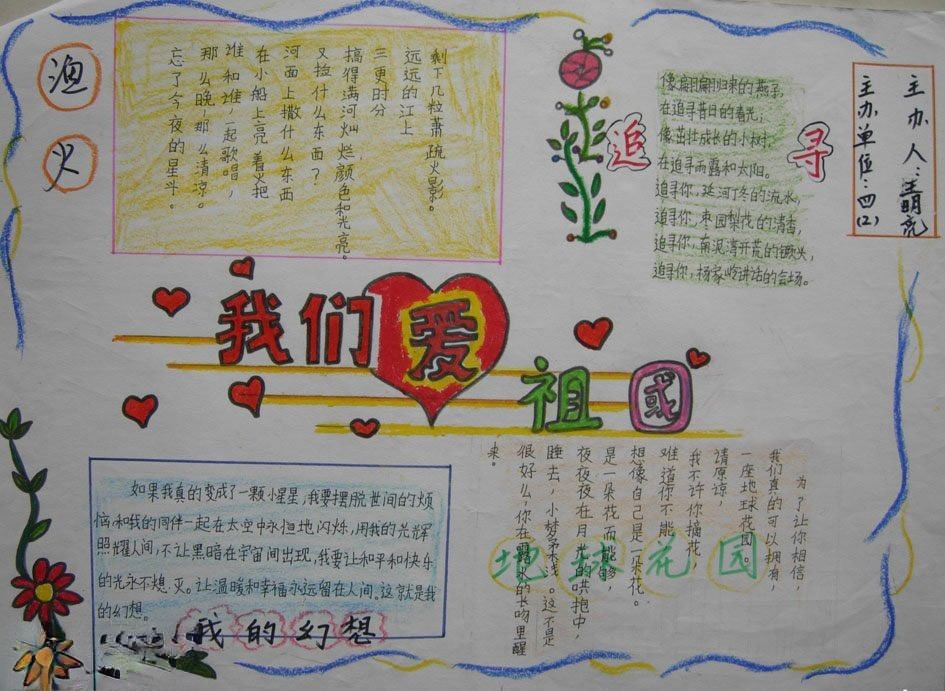 渔火
剩下几粒萧疏火影。
远远的江上
三更时分
搞得满河灿烂颜色和光亮。
又捡什么东西？
河面上撒什么东西
在小船上亮着火把
谁和谁一起歌唱，
那么晚，那么清凉。
忘了今夜的星斗。
追寻
像翩翩归来的燕子，
在追寻昔日的春光；
像茁壮成长的小树，
在追寻雨露和太阳。
追寻你，延河丁冬的流水，
追寻你，枣园梨花的清香，
追寻你，南泥湾开荒的镢头，
追寻你，杨家岭讲话的会场。
主办人：王明亮
主办单位：四(2)
我们爱祖国
地球花园
为了让你相信，
我们真的可以拥有，
一座地球花园。
请原谅，
我不许你摘花，
难道你不能，
想像自己是一朵花。
是一朵花而能够，
夜夜夜在月光的哄抱中，
睡去，小梦柔浅。这不是
很好么，你在露水的长吻里醒
来。
如果我真的变成了一颗小星星，我要摆脱世间的烦
恼，和我的同伴一起在太空中永恒地闪烁，用我的光辉
照耀人间，不让黑暗在宇宙间出现，我要让和平和快乐
的光永不熄灭。让温暖和幸福永远留在人间。这就是我
的幻想。
我的幻想